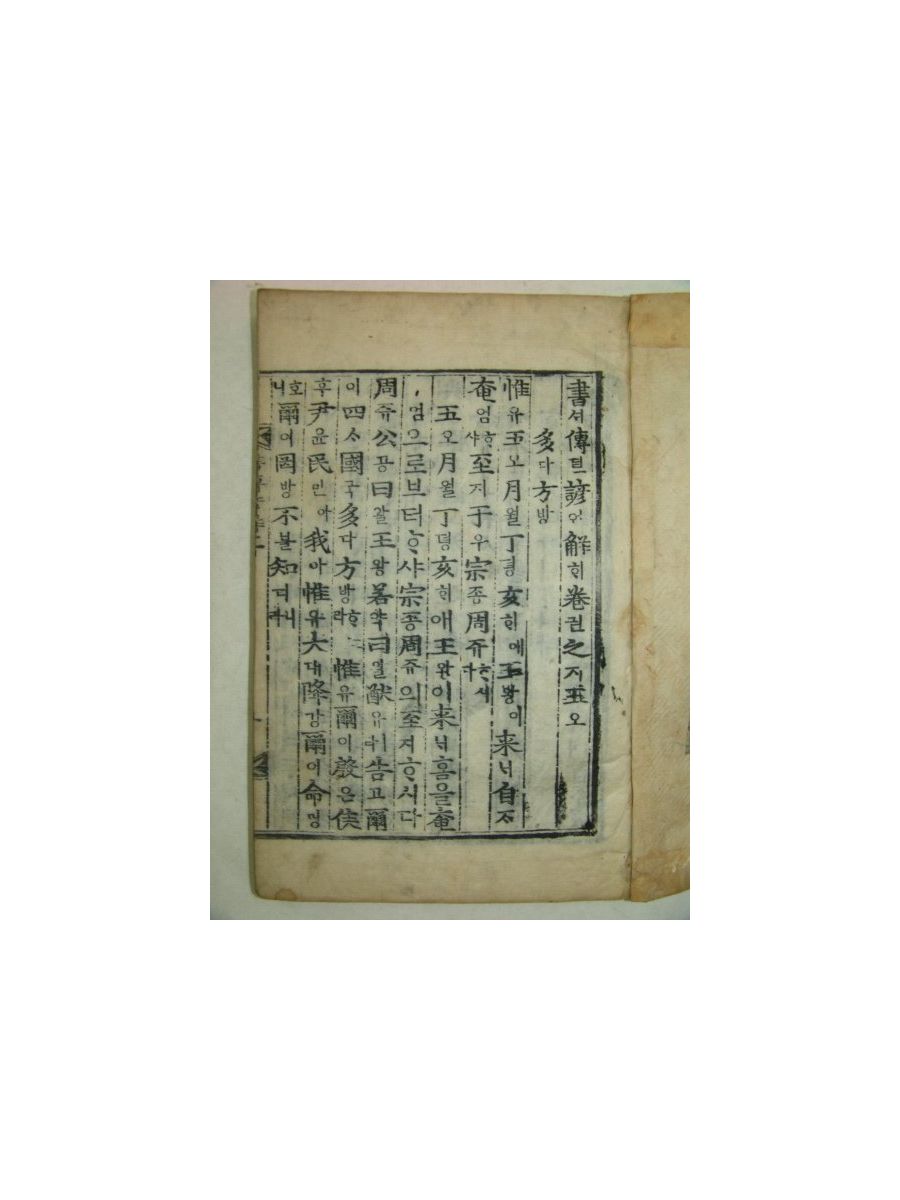 書셔傳뎐諺언解ᄒᆡ卷권之지五오
多다方방
惟유五오月월丁뎡亥ᄒᆡ예王왕이來ᄅᆡ自ᄌᆞ
奄엄ᄒᆞ샤至지于우宗종周쥬ᄒᆞ시다
五오月월丁뎡亥ᄒᆡ애王왕이來ᄅᆡ홈을奄
엄으로브터ᄒᆞ샤宗종周쥬의至지ᄒᆞ시다
周쥬公공曰왈王왕若약曰왈猷유ㅣ라告고爾
이四ᄉᆞ國국多다方방ᄒᆞ노라惟유爾이殷은侯
후尹윤民민아我아惟유大대降강爾이命명
호니爾이罔망不블知디니라